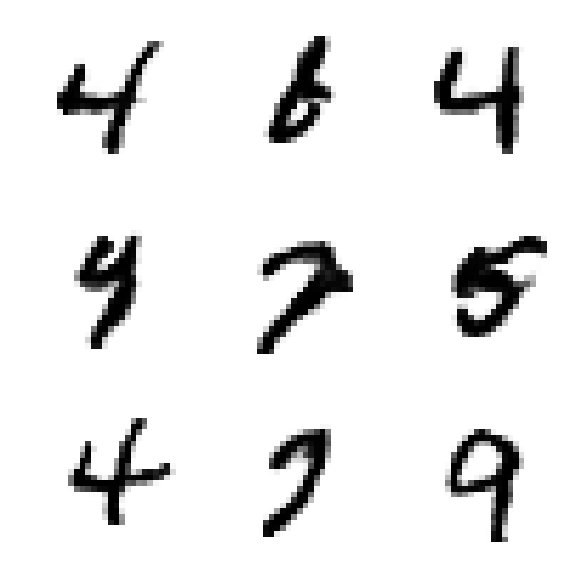 4 6 4
9 7 5
4 7 9